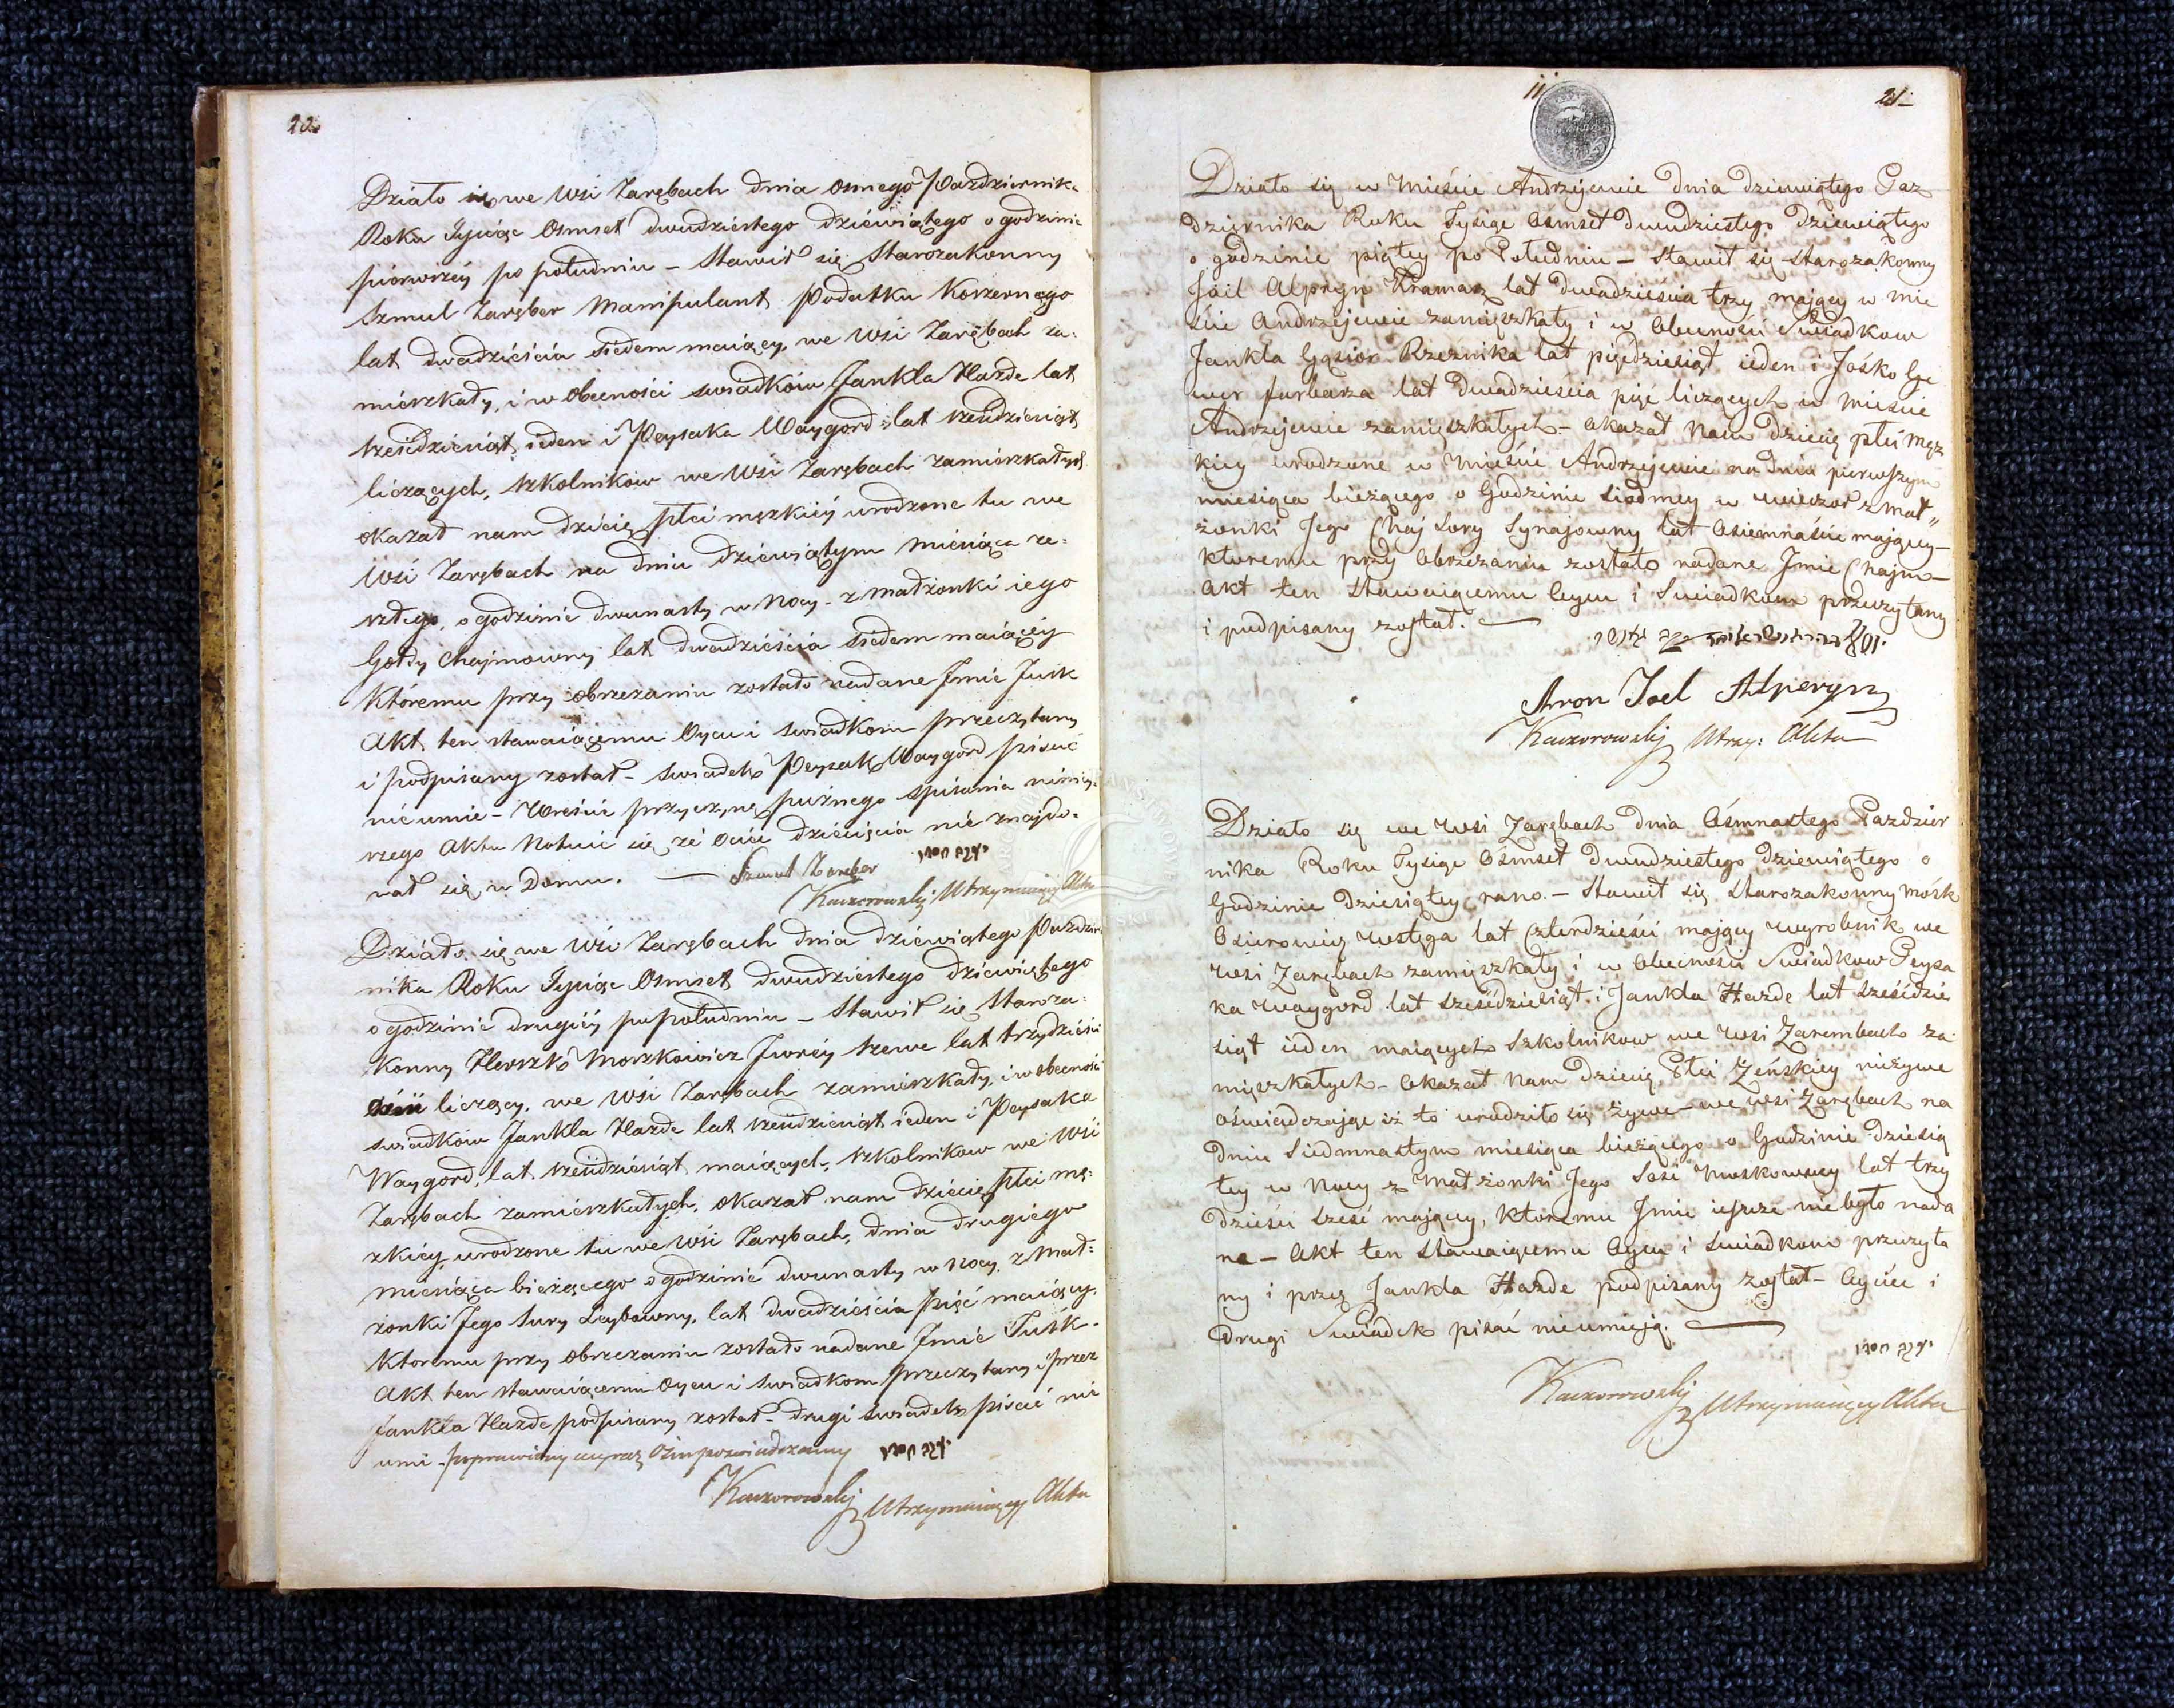 20.
Działo się we Wsi Zarębach dnia osmego Pazdziernika
Roku Tysiąc Osmset dwudziestego dziewiątego o godzinie
pierwszey po południu – Stawił się Starozakonny
Szmul Zaręber Manipulant Podatku Koszernego
lat dwadzieścia siedem maiący, we Wsi Zarębach za-
mieszkały, i w obecności swiadków Jankla Hazde lat
sześćdziesiąt ieden i Peysaka Waygord lat sześćdziesiąt
liczących, szkolników we Wsi Zarębach zamieszkałych
okazał nam dziecię płci męzkiéy urodzone tu we
Wsi Zarębach na dniu dziewiątym miesiąca ze-
szłego, o godzinie dwunasty w Nocy – z małżonki iego
Gołdy Chajmowny lat dwadzieścia siedem maiącéy
któremu przy obrzezaniu zostało nadane Imie Jusk
Akt ten stawaiącemu Oycu i swiadkom przeczytany
i podpisany został – Swiadek Peysak Waygord pisać
nie umie – Wreście przyczynę puźnego spisania niniey-
szego Aktu Notuie się że Ociec dziecięcia nie znajdo-
wał się w Domu. — Szmul Zareber
Kaczorowskij Utrzymuiący Akta
Działo się we Wsi Zarębach dnia dziewiątego Pazdzier
nika Roku Tysiąc Osmset dwudziestego dziewiętego
o godzinie drugiéy po południu – Stawił się Staroza-
konny Herszk Moszkowicz Jwréy szewc lat trzydzieści
liczący, we Wsi Zarębach zamieszkały, i w obecności
swiadków Jankla Hazde lat sześćdziesiąt ieden i Peysaka
Waygord, lat sześćdziesiąt maiących, szkolników we Wsi
Zarębach zamieszkałych, okazał nam dziecię płci mę-
zkiéy urodzone tu we Wsi Zarębach, dnia drugiégo
miesiąca bieżącego o godzinie dwunasty w Nocy, z Mał-
żonki Jego Sury Leybowny, lat dwadzieścia pięć maiącéy,
któremu przy obrzezaniu zostało nadane Imie Jusk.
Akt ten stawaiącemu Oycu i swiadkom przeczytany i przez
Jankla Hazde podpisany został – drugi swiadek pisać nie
umi – poprawiony wyraz poswiadczamy
Kaczorowskij Utrzymuiący Akta
11
21
Działo się w Mieście Andrzejewie Dnia dziewiątego Paz
dziernika Roku Tysiąc Osmset Dwudziestego Dziewiątego
o godzinie piątey po Południu – Stawił się Starozakonny
Joil Alperyn Kramarz lat Dwadzieścia trzy maiący w mie
ście Andrzejewie zamięszkały i w Obecności Swiadkow
Jankla Gąsior Rzeznika lat pięćdziesiąt ieden i Jośko Ge
wer farbarza lat Dwadzieścia pięć liczących w Mieście
Andrzejewie zamięszkałych – Okazał Nam Dziecię płci męz
kiey urodzone w Mieście Andrzejewie na Dniu pierwszym
miesiąca bieżącego o Godzinie siodmey w wieczor z mał„
żonki Jego Chaj Sory Synajowny lat Osiemnaście maiącey –
kturemu przy Obrzezaniu zostało nadane Imie Chajm –
Akt ten Stawaiącemu Oycu i Swiadkom przeczytany
i podpisany został. —
Aron Joel Alperyn
Kaczorowskij Utrzy: Akta
Działo się we Wsi Zarębach dnia Ośmnastego Pazdzier
nika Roku Tysiąc Osmset Dwudziestego dziewiątego o
Godzinie Dziesiątey rano. – Stawił się Starozakonny Mośk
lat Czterdzieści maiący wyrobnik we
Wsi Zarębach zamięszkały i w Obecności Swiadkow Peysa
ka Waygord lat sześćdziesiąt i Jankla Hazde lat sześćdzie
siąt ieden maiących Szkolnikow we Wsi Zarembach za
mięszkałych – Okazał Nam Dziecię, Płci Zeńskiey nieżywe
oświadczając iż to urodziło się żywe – we wsi Zarębach na
Dniu Siedmnastym miesiąca bieżącego o Godzinie Dziesią
tey w Nocy z Małżonki Jego Sosi Moskowney lat trzy
dzieści sześć maiącey, któremu Imie ieszcze nie było nada
ne – Akt ten Stawaiącemu Oycu i swiadkom przeczyta
ny i przez Jankla Hazde podpisany został – Oyciec i
Drugi Swiadek pisać nieumieją. —
Kaczorowskij Utrzymuiący Akta